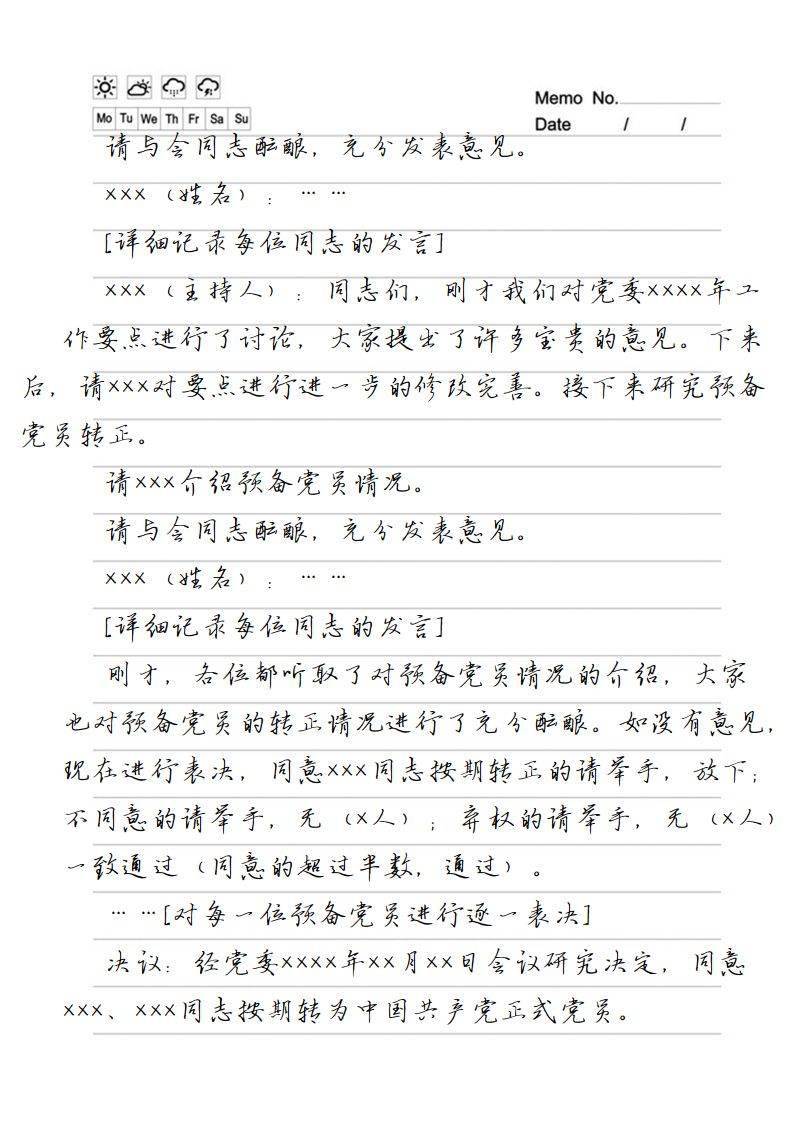 Memo No.
Mo Tu We Th Fr Sa Su
Date / /
请与会同志酝酿，充分发表意见。
×××（姓名）：… …
[详细记录每位同志的发言]
×××（主持人）：同志们，刚才我们对党委××××年工
作要点进行了讨论，大家提出了许多宝贵的意见。下来
后，请×××对要点进行进一步的修改完善。接下来研究预备
党员转正。
请×××介绍预备党员情况。
请与会同志酝酿，充分发表意见。
×××（姓名）：… …
[详细记录每位同志的发言]
刚才，各位都听取了对预备党员情况的介绍，大家
也对预备党员的转正情况进行了充分酝酿。如没有意见，
现在进行表决，同意×××同志按期转正的请举手，放下；
不同意的请举手，无（×人）；弃权的请举手，无（×人）
一致通过（同意的超过半数，通过）。
… …[对每一位预备党员进行逐一表决]
决议：经党委××××年××月××日会议研究决定，同意
×××、×××同志按期转为中国共产党正式党员。